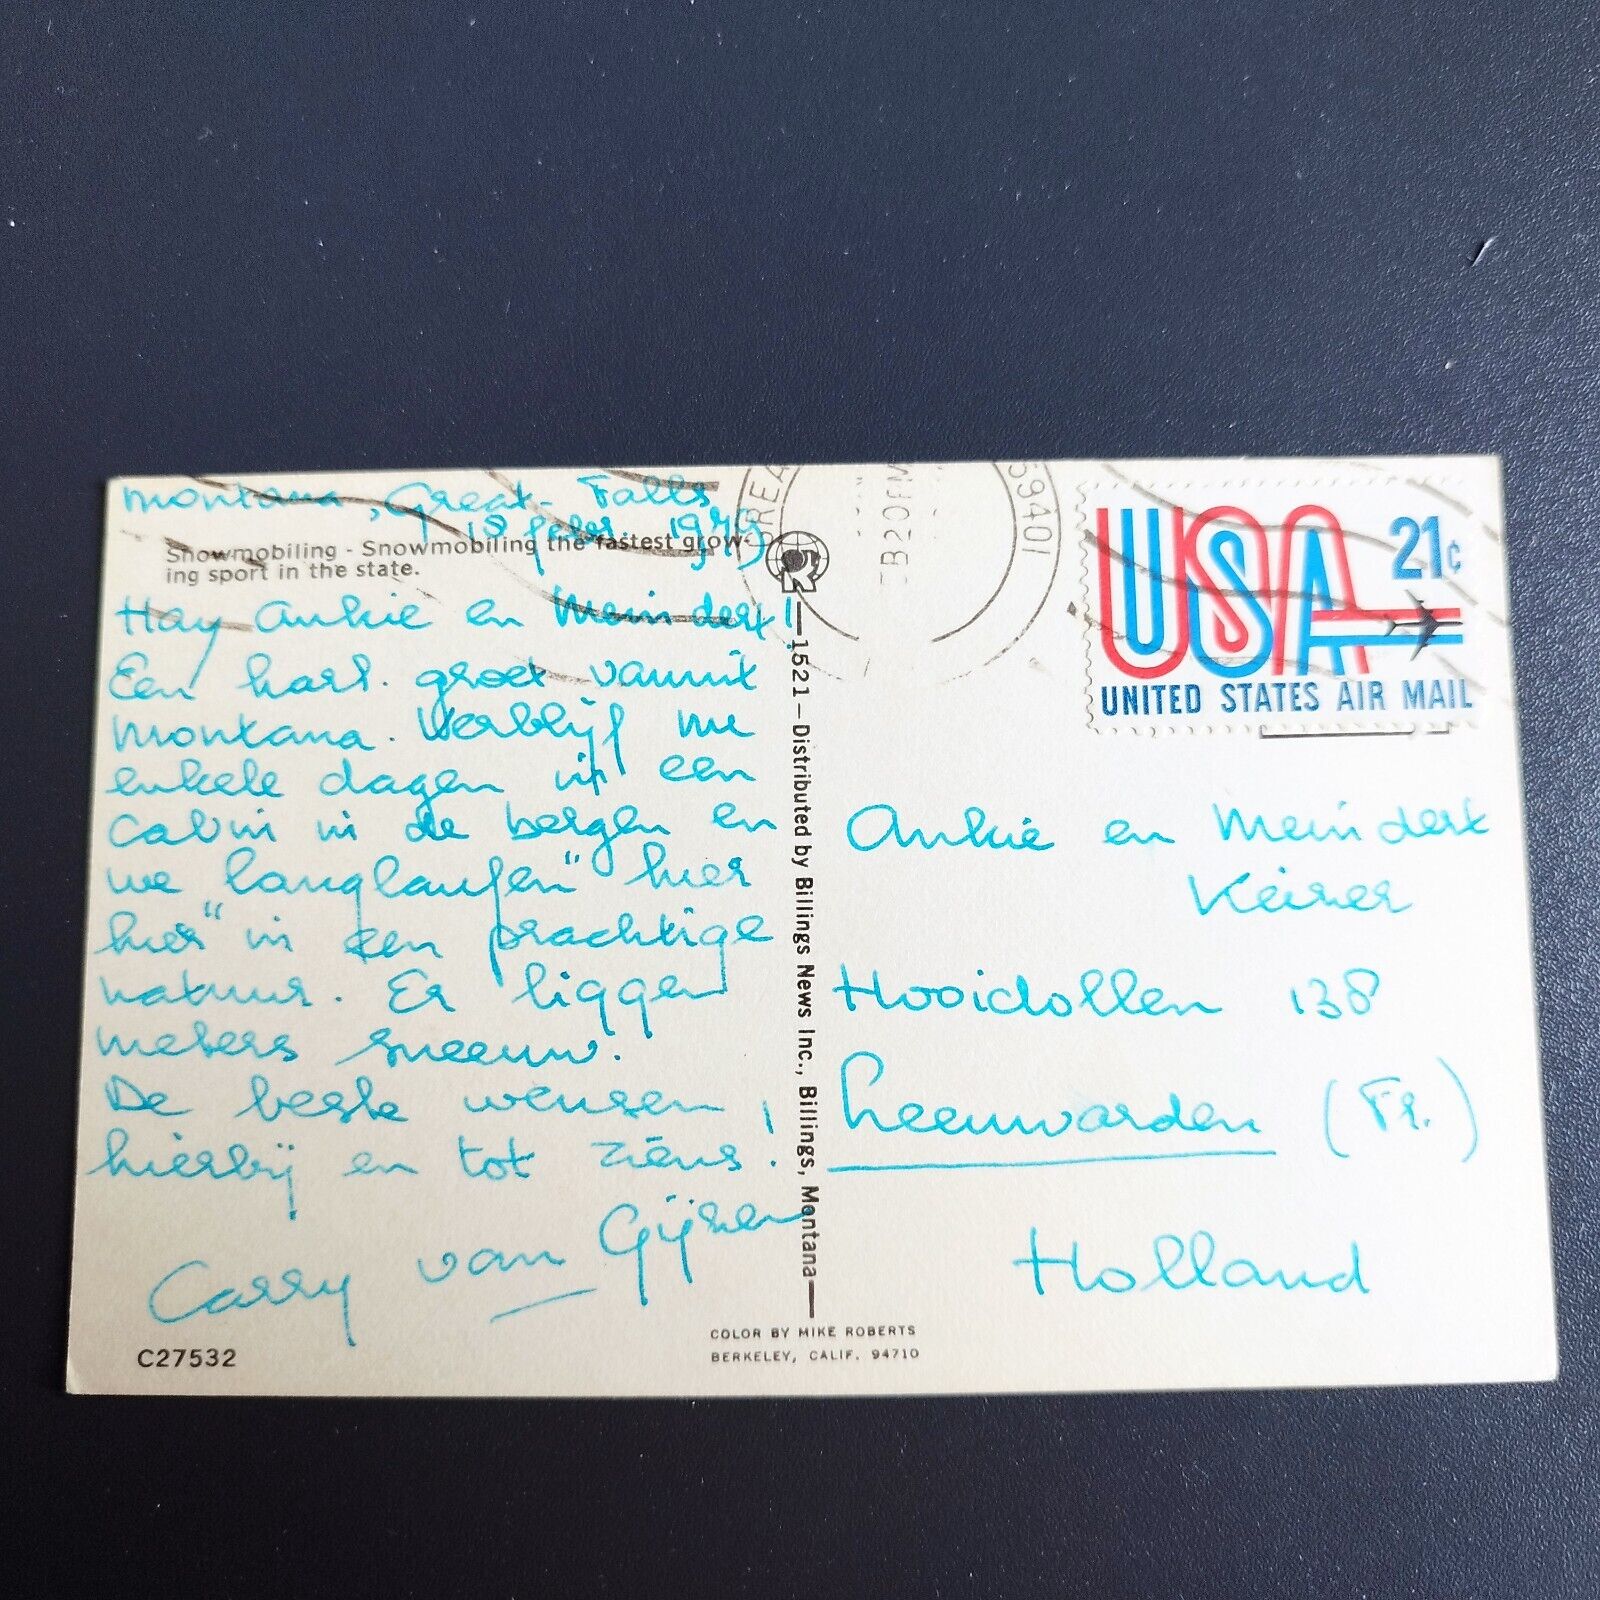 Montana, Great-Falls
18 febr. 1979
Snowmobiling - Snowmobiling the fastest grow-
ing sport in the state.
Hay Ankie en Meindert!
Een hart. groet vanuit
Montana. Verblijf nu
enkele dagen in een
cabin in de bergen en
we "langlaufen" hier
hier in een prachtige
natuur. Er liggen
meters sneeuw.
De beste wensen,
hierbij en tot ziens!
Carry van Gijzen
C27532
1521-Distributed by Billings News Inc., Billings, Montana
COLOR BY MIKE ROBERTS
BERKELEY, CALIF. 94710
59401
USA 21c
UNITED STATES AIR MAIL
Ankie en Meindert
Keizer
Hooidollen 138
Leeuwarden (Fr.)
Holland